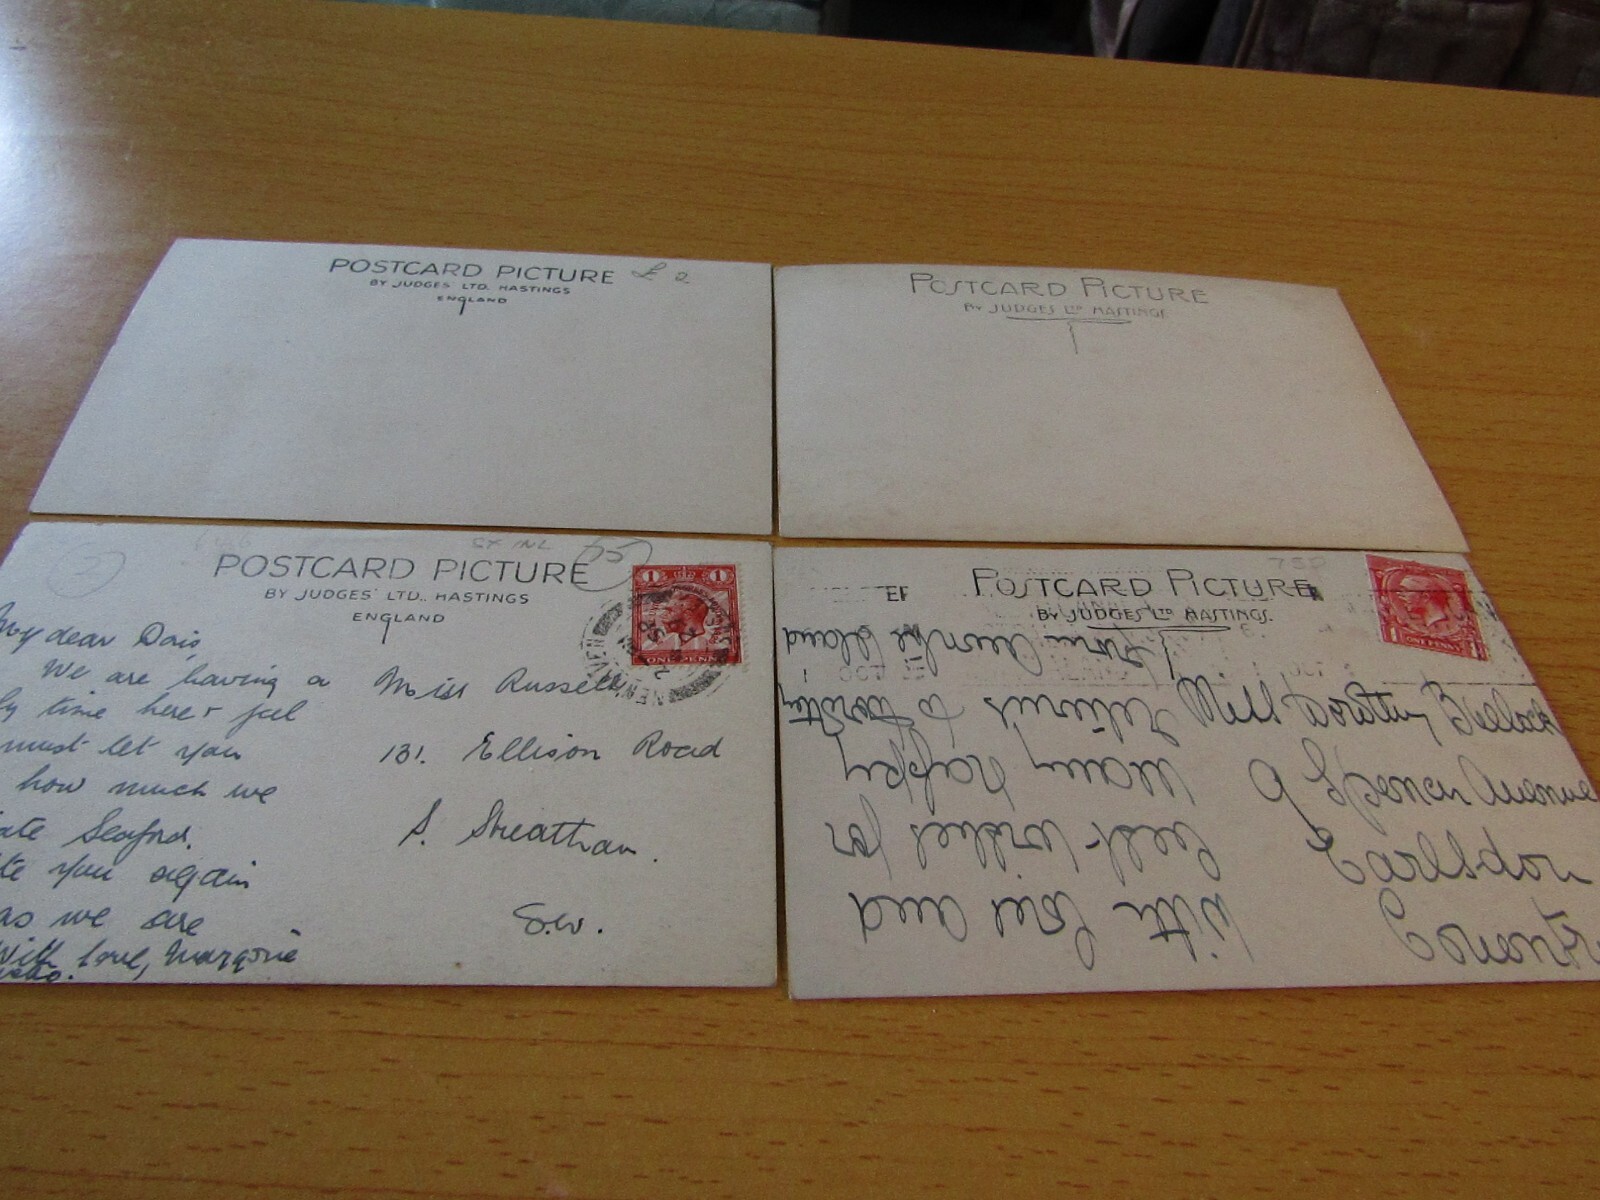 POSTCARD PICTURE £ 2
BY JUDGES' LTD. HASTINGS
ENGLAND
POSTCARD PICTURE
BY JUDGES LTD HASTINGS
SX INL 55
POSTCARD PICTURE
BY JUDGES' LTD., HASTINGS
ENGLAND
1 1
ONE PENNY
My dear Doris,
We are having a
time here + feel
must let you
how much we
Seaford.
you again
as we are
With love, Marjorie
Miss Russell
131. Ellison Road
S. Streatham.
S.W.
75P
POSTCARD PICTURE
BY JUDGES LTD HASTINGS.
1 ONE PENNY 1
Miss Dorothy Bullock
9 Spencer Avenue
Earlsdon
Coventry
With love and
best wishes for
many happy
returns to Dorothy
from Auntie